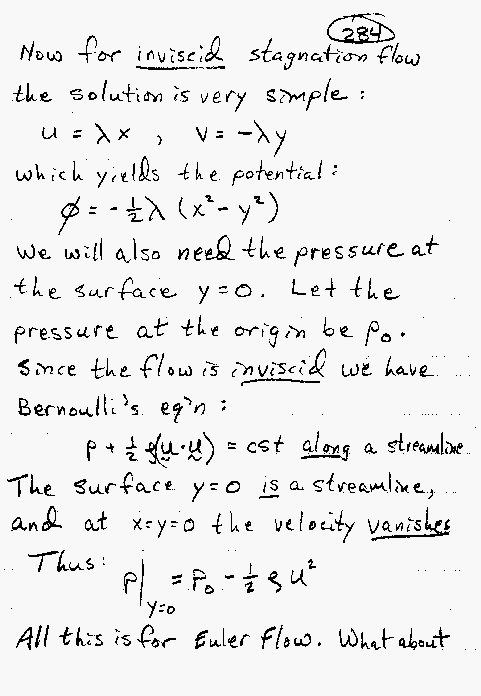 284
Now for inviscid stagnation flow
the solution is very simple :
u = λx , v = -λy
which yields the potential :
φ = - ½ λ (x² - y²)
We will also need the pressure at
the surface y=0. Let the
pressure at the origin be p₀.
Since the flow is inviscid we have
Bernoulli's eq'n :
p + ½ ρ(u·u) = cst along a streamline
The surface y=0 is a streamline,
and at x=y=0 the velocity vanishes
Thus:
p|y=0 = p₀ - ½ ρ u²
All this is for Euler Flow. What about